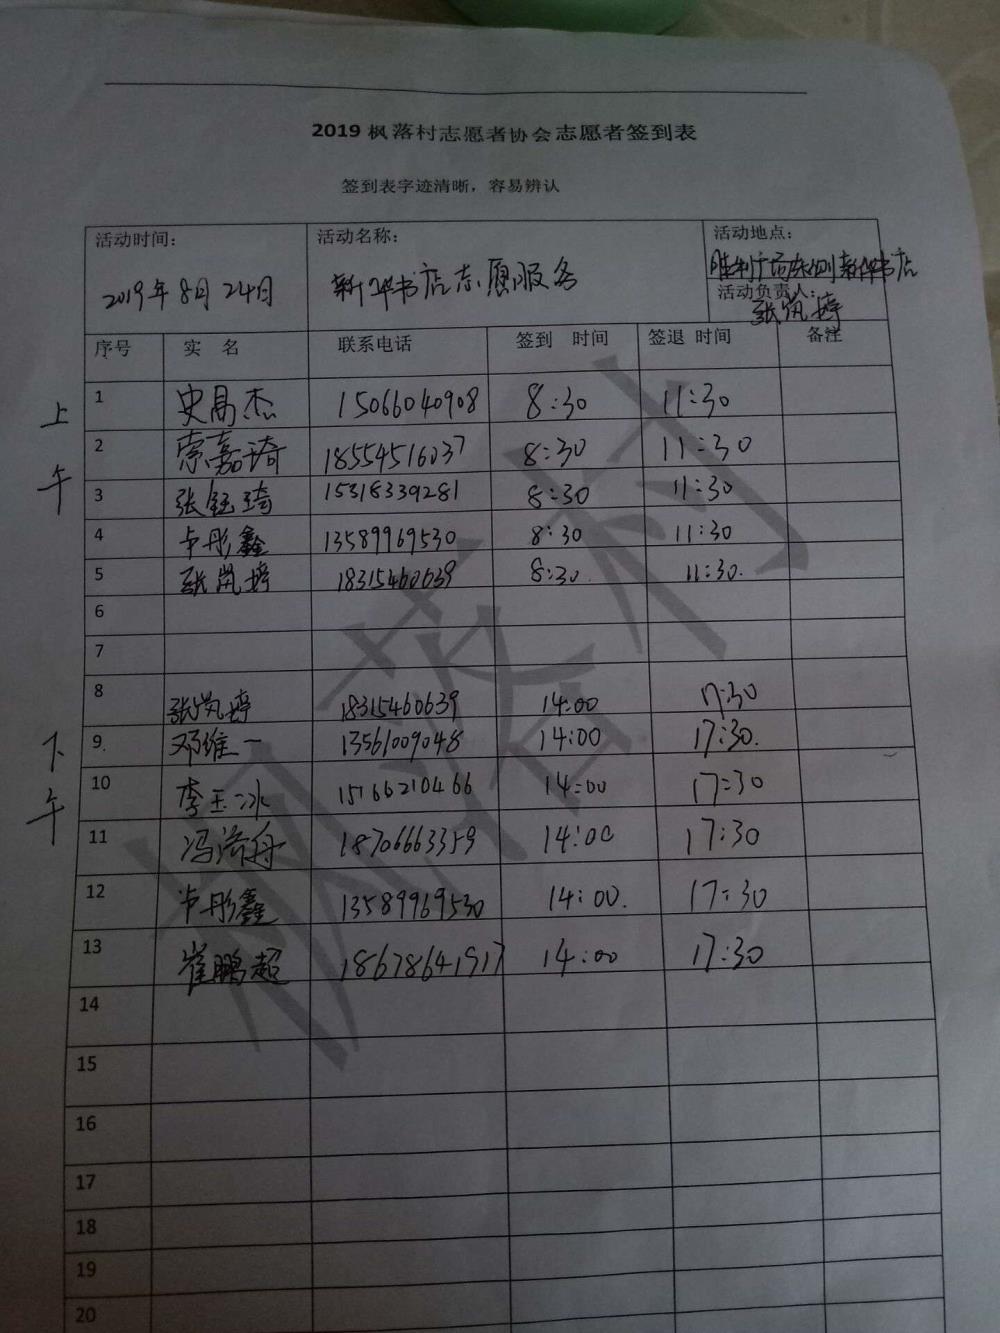 2019 枫落村志愿者协会志愿者签到表
签到表字迹清晰，容易辨认
活动时间： 活动名称： 活动地点：
2019年8月24日 新华书店志愿服务 胜利广场东侧新华书店
活动负责人：张岚婷
序号 实 名 联系电话 签到 时间 签退 时间 备注
上午
1 史昌杰 15066040908 8:30 11:30
2 索嘉琦 18554516037 8:30 11:30
3 张钰琦 15318339281 8:30 11:30
4 卢彤鑫 13589969530 8:30 11:30
5 张岚婷 18315460639 8:30. 11:30.
6
7
下午
8 张岚婷 18315460639 14:00 17:30
9. 邓维一 13561009048 14:00 17:30.
10 李玉冰 15166210466 14:00 17:30
11 冯浩舟 18706663359 14:00 17:30
12 卢彤鑫 13589969530 14:00. 17:30
13 崔鹏超 18678641917 14:00 17:30
14
15
16
17
18
19
20
枫落村